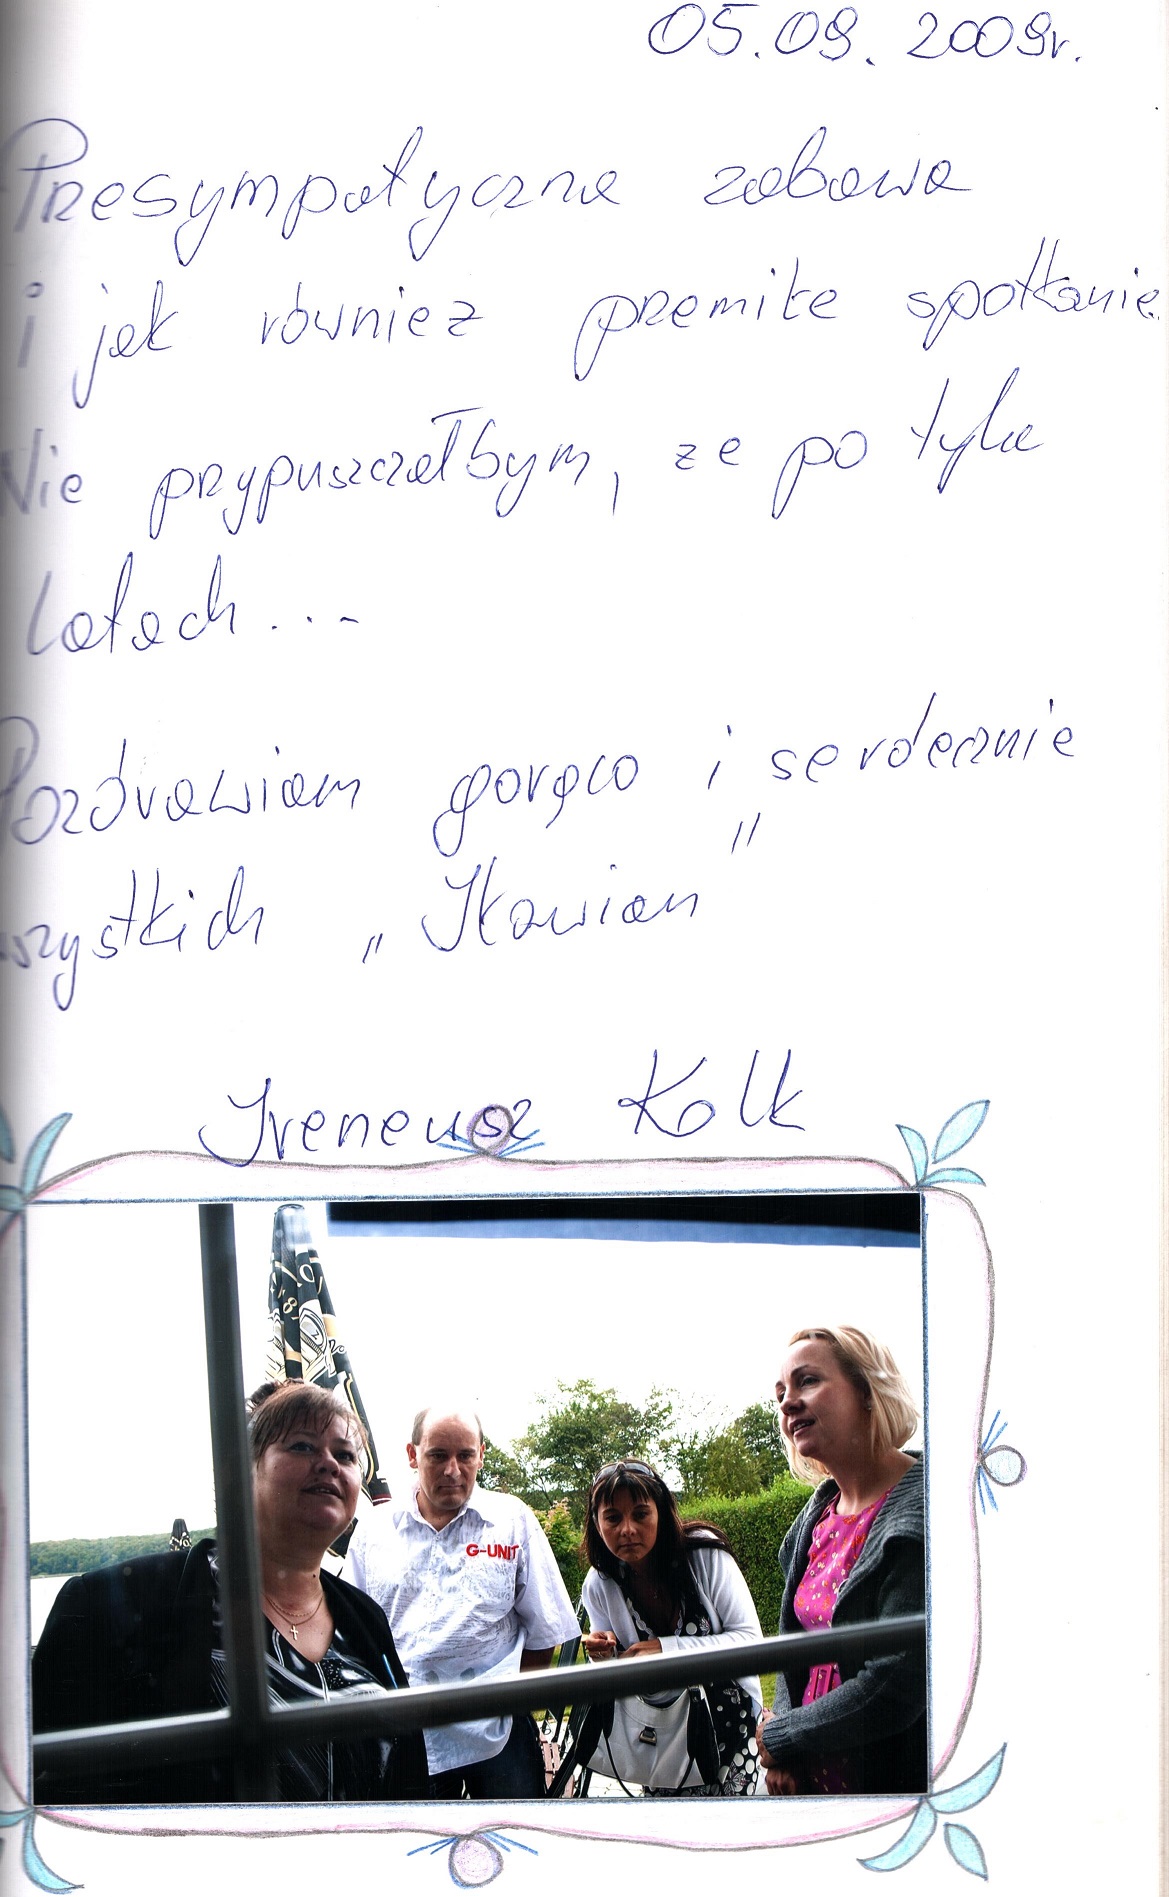 05.09.2009r.
Przesympatyczna zabawa
i jak również przemiłe spotkanie.
Nie przypuszczałbym, że po tylu
latach...
Pozdrawiam gorąco i serdecznie
wszystkich „Iławian"
Ireneusz Kolk
G-UNIT